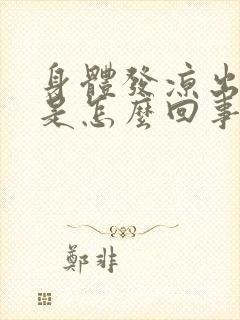 身體發凉出
是怎麼回事
鄭非